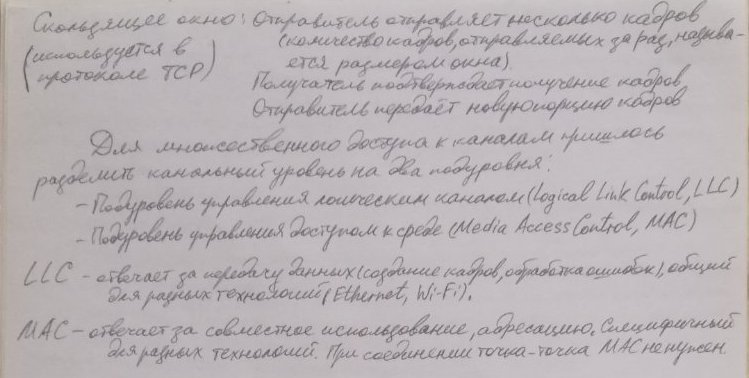 Скользящее окно: Отправитель отправляет несколько кадров
(используется в (количество кадров, отправляемых за раз, называ-
протоколе TCP) ется размером окна).
Получатель подтверждает получение кадров
Отправитель передаёт новую порцию кадров
Для множественного доступа к каналам пришлось
разделить канальный уровень на два подуровня:
- Подуровень управления логическим каналом (Logical Link Control, LLC)
- Подуровень управления доступом к среде (Media Access Control, MAC)
LLC - отвечает за передачу данных (создание кадров, обработка ошибок), общий
для разных технологий (Ethernet, Wi-Fi).
MAC - отвечает за совместное использование, адресацию. Специфичный
для разных технологий. При соединении точка-точка MAC не нужен.